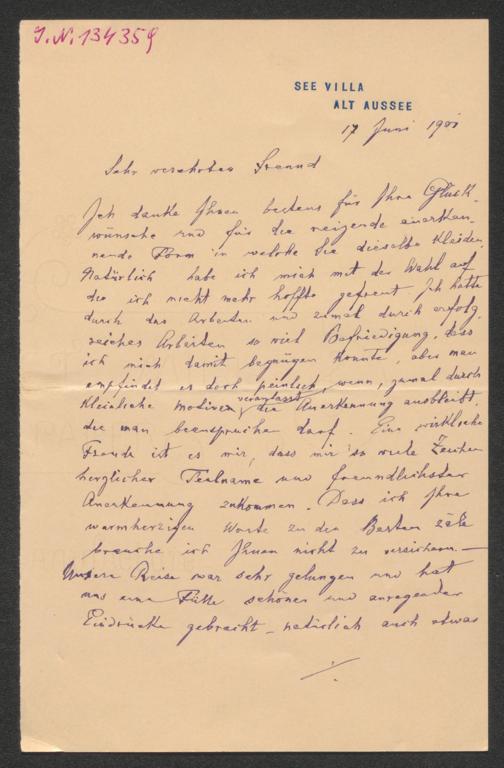 J.N. 134359
SEE VILLA
ALT AUSSEE
17 Juni 1901
Sehr verehrter Freund
Ich danke Ihnen bestens für Ihre Glück-
wünsche und für die reizende anerken-
nende Form in welche Sie dieselbe kleiden.
Natürlich habe ich mich mit der Wahl auf
die ich nicht mehr hoffte gefreut. Ich hatte
durch das Arbeiten und zumal durch erfolg-
reiches Arbeiten so viel Befriedigung, dass
ich mich damit begnügen konnte, aber man
empfindet es doch peinlich, wenn, zumal durch
kleinliche Motive veranlasst, die Anerkennung ausbleibt
die man beanspruchen darf. Eine wirkliche
Freude ist es mir, dass mir so viele Zeichen
herzlicher Teilname und freundlichster
Anerkennung zukommen. Dass ich Ihre
warmherzigen Worte zu den Besten zäle
brauche ich Ihnen nicht zu versichern. —
Unsere Reise war sehr gelungen und hat
uns eine Fülle schöner und anregender
Eindrücke gebracht – natürlich auch etwas
./.